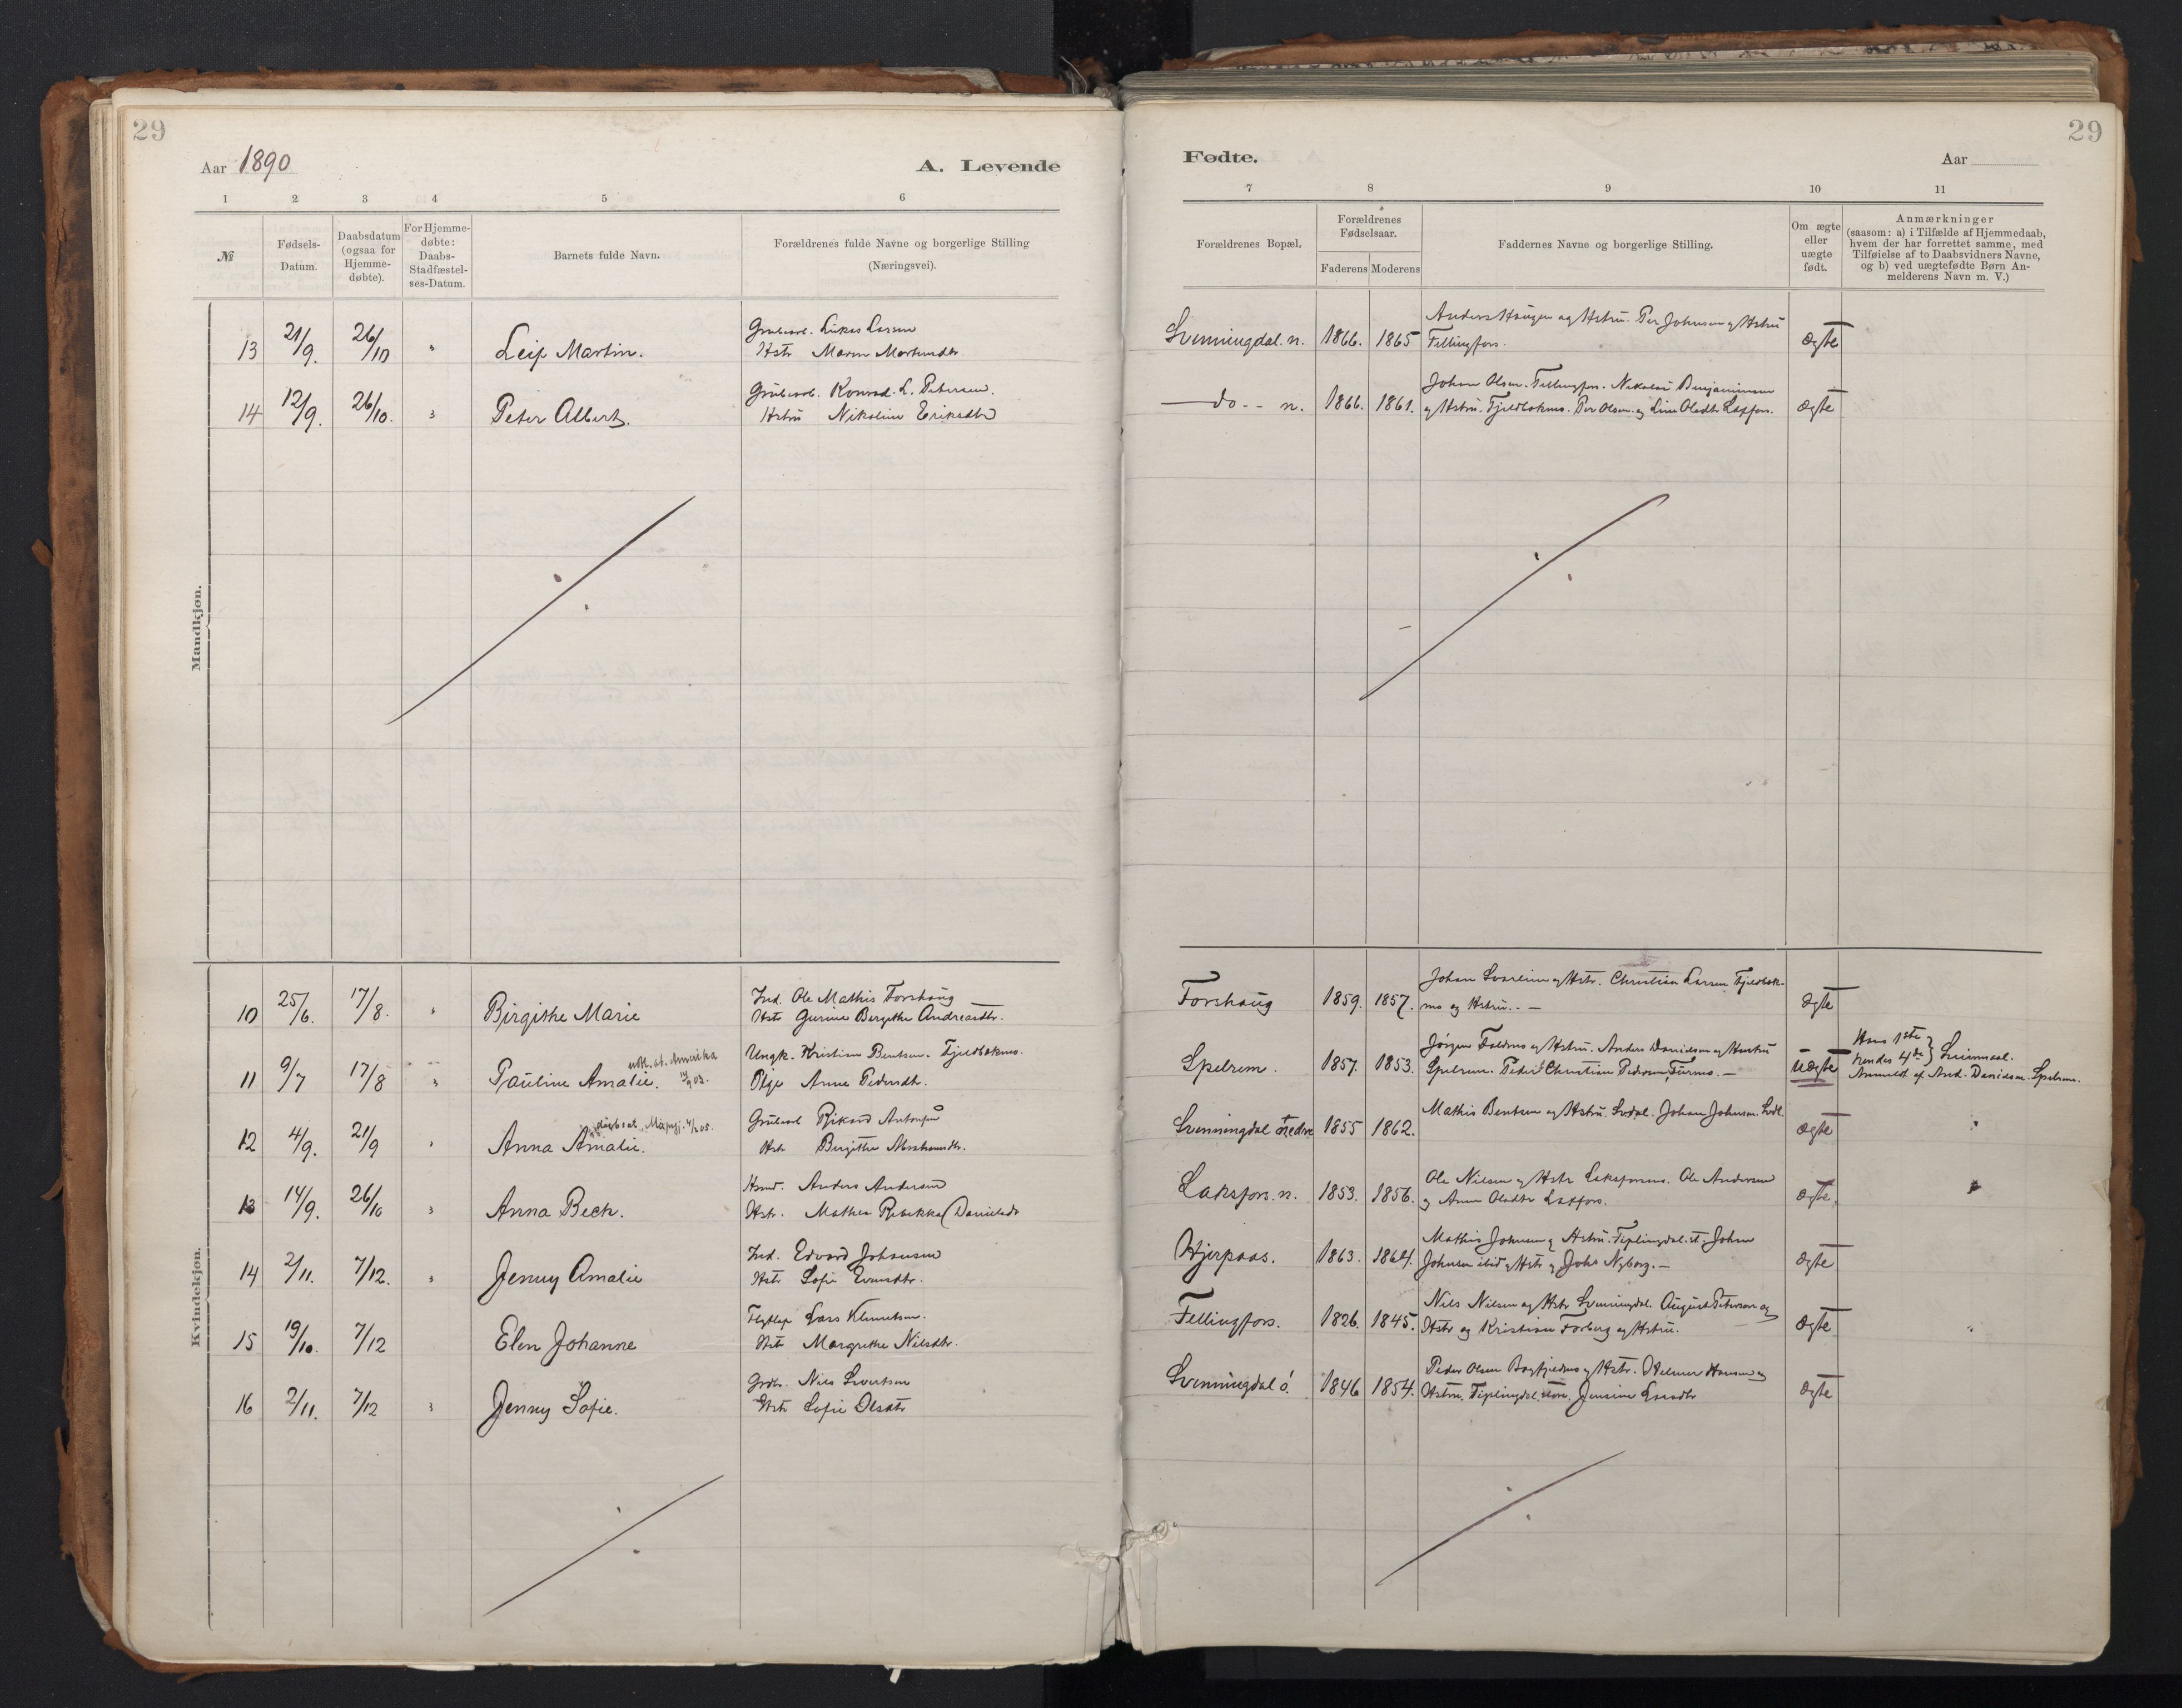 29
29
Aar 1890
A. Levende
Fødte.
Aar
1 2 3 4 5 6
7 8 9 10 11
№
Fødsels-
Datum.
Daabsdatum
(ogsaa for
Hjemme-
døbte).
For Hjemme-
døbte:
Daabs-
Stadfæstel-
ses-Datum.
Barnets fulde Navn.
Forældrenes fulde Navne og borgerlige Stilling
(Næringsvei).
Forældrenes Bopæl.
Forældrenes
Fødselsaar.
Faderens Moderens
Faddernes Navne og borgerlige Stilling.
Om ægte
eller
uægte
født.
Anmærkninger
(saasom: a) i Tilfælde af Hjemmedaab,
hvem der har forrettet samme, med
Tilføielse af to Daabsvidners Navne,
og b) ved uægtefødte Børn An-
melderens Navn m. V.)
Mandkjøn.
13 21/9. 26/10 " Leif Martin.
Grubearb. Lukas Larsen
Hstr Maren Martinsdtr.
Svenningdal. n. 1866. 1865
Anders Haugen og Hstru. Per Johnsen og Hstru
Fellingfors.
ægte
14 12/9. 26/10. " Peter Albert.
Grubearb. Konrad. L. Petersen.
Hstru Nikoline Eriksdtr
do -- n. 1866. 1861.
Johan Olsen. Fellingfors. Nikolai Benjaminsen
og Hstru. Fjeldbakmo. Per Olsen og Line Olsdtr Laxfors.
ægte
Kvindekjøn.
10 25/6. 17/8. " Birgithe Marie
Ind. Ole Mathis Forshaug
Hstr Gurine Bergithe Andreasdtr.
Forshaug 1859. 1857.
Johan Svarlien og Hstr. Christian Larsen Fjeldbak-
mo og Hstru. -
ægte
11 9/7 17/8 " Pauline Amalie.
utfl. at. Amerika
Ungk. Kristian Bentsen. Fjeldbakmo.
Pige Anne Pedersdtr.
Spelrem. 1857. 1853.
Jørgen Foldmo og Hstru. Anders Danielsen og Hustru
Spelrem. Peder Christian Pedersen Turmo. -
uægte
Hans 1ste
hendes 4de } Leiermaal.
Anmeldt af And. Danielsen. Spelrem.
12 4/9. 21/9 " Anna Amalie.
Grubearb Rikard Antonsen
Hstr Birgitte Abrahamsdtr.
Svenningdal nedre 1855 1862.
Mathis Bentsen og Hstru. Svdal. Johan Johnsen. Svdl.
ægte
13 14/9. 26/10 " Anna Bech.
Hsmd. Anders Andersen
Hstr. Mathea Rebekka Danielsdr
Laksfors. n. 1853. 1856.
Ole Nilsen og Hstr Laksforsmo. Ole Andersen
og Anne Olsdtr Laxfors.
ægte.
14 2/11. 7/12. " Jenny Amalie
Ind. Edvard Johansen
Hstr Sofie Evensdtr.
Hjerpaas. 1863. 1864.
Mathis Johnsen og Hstru. Fiplingdal. st. Johan
Johnsen ibid og Hstr og Johs Nyborg. -
ægte
15 19/10. 7/12 Elen Johanne
Flytlap Lars Klemetsen.
Hstr Margrethe Nilsdtr.
Fellingfors. 1826. 1845.
Nils Nilsen og Hstr Svenningdal. August Peterson og
Hstr og Kristian Forberg og Hstru.
ægte
16 2/11. 7/12 " Jenny Sofie.
Grdbr. Nils Sivertsen
Hstr Sofie Olsdtr
Svenningdal ø. 1846 1854.
Peder Olsen Bagfjeldmo og Hstr. Helmer Hansen og
Hstru. Fiplingdal store. Jensine Larsdtr
ægte